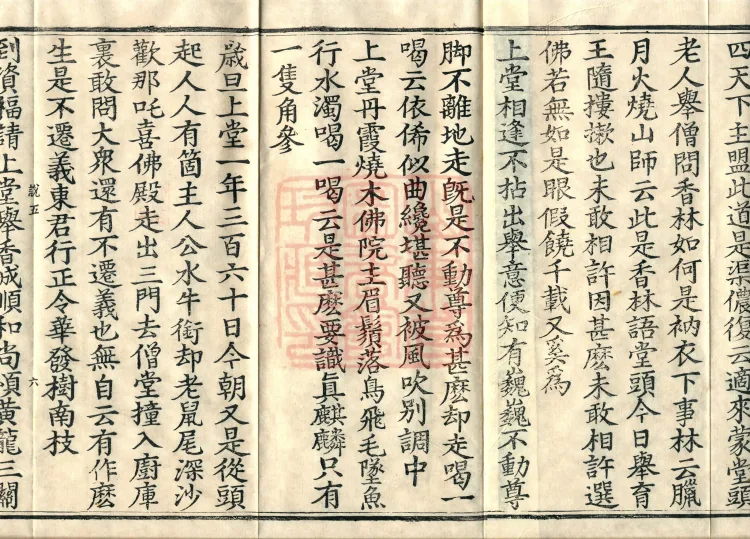 四天下主盟此道是渠儂復云適來蒙堂頭
老人舉僧問香林如何是衲衣下事林云臘
月火燒山師云此是香林語堂頭今日舉育
王隨摟𢷾也未敢相許因甚麽未敢相許選
佛若無如是眼假饒千載又奚為
上堂相逢不拈出舉意便知有巍巍不動尊
脚不離地走旣是不動尊為甚麽却走喝一
喝云依俙似曲纔堪聽又被風吹別調中
上堂丹霞燒木佛院主眉鬚落鳥飛毛墜魚
行水濁喝一喝云是甚麽要識眞麒麟只有
一隻角參
歲旦上堂一年三百六十日今朝又是從頭
起人人有箇主人公水牛銜却老鼠尾深沙
歡那吒喜佛殿走出三門去僧堂撞入廚庫
裏敢問大衆還有不遷義也無自云有作麽
生是不遷義東君行正令華發樹南技
說五
六
到資福請上堂舉香城順和尚頌黃龍三關